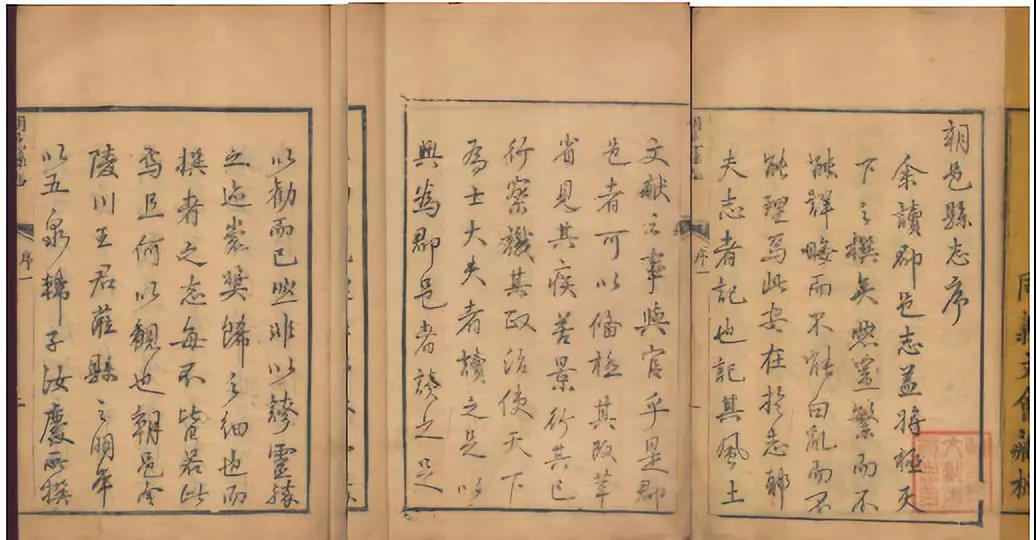 朝邑縣志序
余讀郡邑志蓋將極天
下之撰矣然繁而不
能詳晦而不能白亂而不
能理焉此安在於志耶
夫志者記也記其風土
序一
文獻之事與官乎是郡
邑者可以備極其改革
省見其疾苦景行其已
行察識其政治使天下
為士大夫者讀之足以
興為郡邑者讀之足
以勸而已然非以誇靈勝
之迹崇獎飾之細也而
撰者之志每不皆若此
焉且何以觀也朝邑令
陵川王君蒞縣之明年
以五泉韓子汝慶所撰
序一